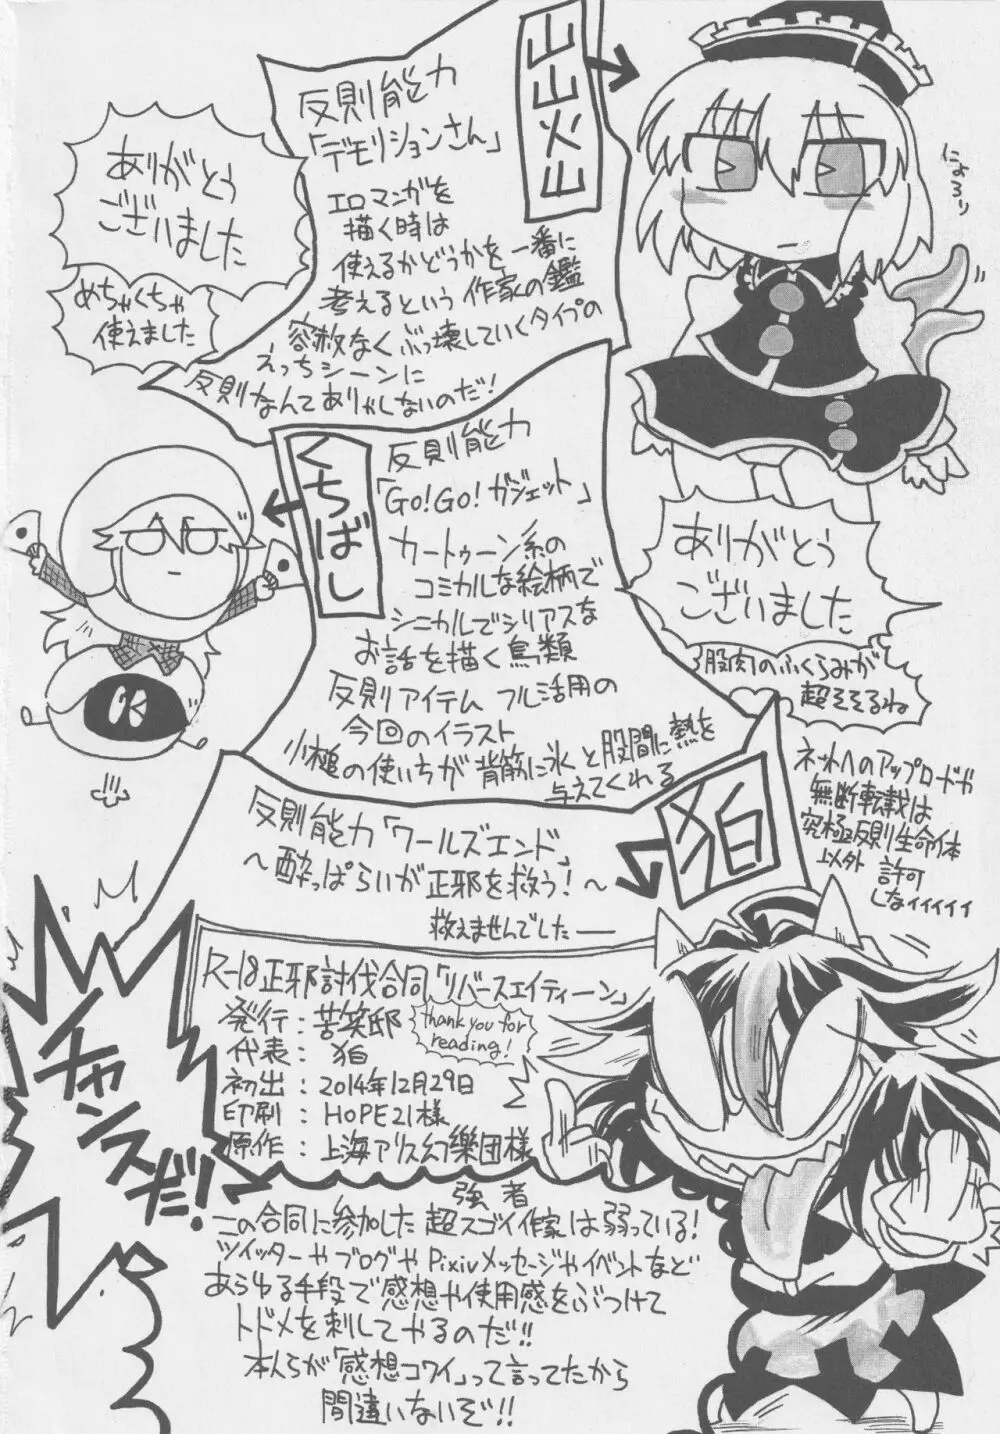 山山火山
反則能力
「デモリションさん」
エロマンガを
描く時は
使えるかどうかを一番に
考えるという作家の鑑
容赦なくぶっ壊していくタイプの
えっちシーンに
反則なんてありゃしないのだ!
ありがとう
ございました
めちゃくちゃ
使えました
にょろり
くちばし
反則能力
「GO!GO!ガジェット」
カートゥーン系の
コミカルな絵柄で
シニカルでシリアスな
お話を描く鳥類
反則アイテム フル活用の
今回のイラスト
小槌の使いちが背筋に氷と股間に熱を
与えてくれる
ありがとう
ございました
股肉のふくらみが
超そそるね
狛
反則能力「ワールズエンド」
~酔っぱらいが正邪を救う!~
救えませんでした――
ネットへのアップロードや
無断転載は
究極反則生命体
以外 許可
しなィィィィィ
R-18正邪討伐合同「リバースエイティーン」
発行:苦笑邸
代表:狛
初出:2014年12月29日
印刷:HOPE21様
原作:上海アリス幻樂団様
thank you for
reading!
チャンスだ!
強者
この合同に参加した超スゴイ作家は弱っている!
ツイッターやブログやPixivメッセージやイベントなど
あらゆる手段で感想や使用感をぶつけて
トドメを刺してやるのだ!!
本人らが「感想コワイ」って言ってたから
間違いないぞ!!